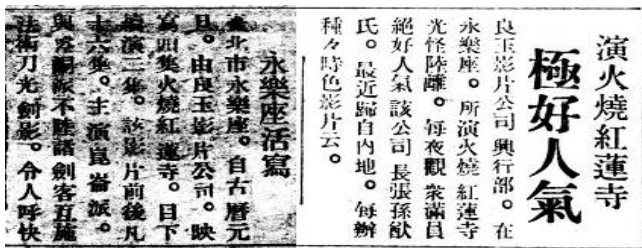 演火燒紅蓮寺
極好人氣
良玉影片公司興行部。在
永樂座。所演火燒紅蓮寺
光怪陸離。每夜觀衆滿員
絕好人氣該公司長張孫猷
氏。最近歸自內地。每辦
種々時色影片云。
永樂座活寫
臺北市永樂座。自古曆元
旦。由良玉影片公司。映
寫四集火燒紅蓮寺。目下
續演二集。該影片前後凡
十六集。主演崑崙派。
與崆峒派不睦諸劍客互施
法術刀光劍影。令人呼快